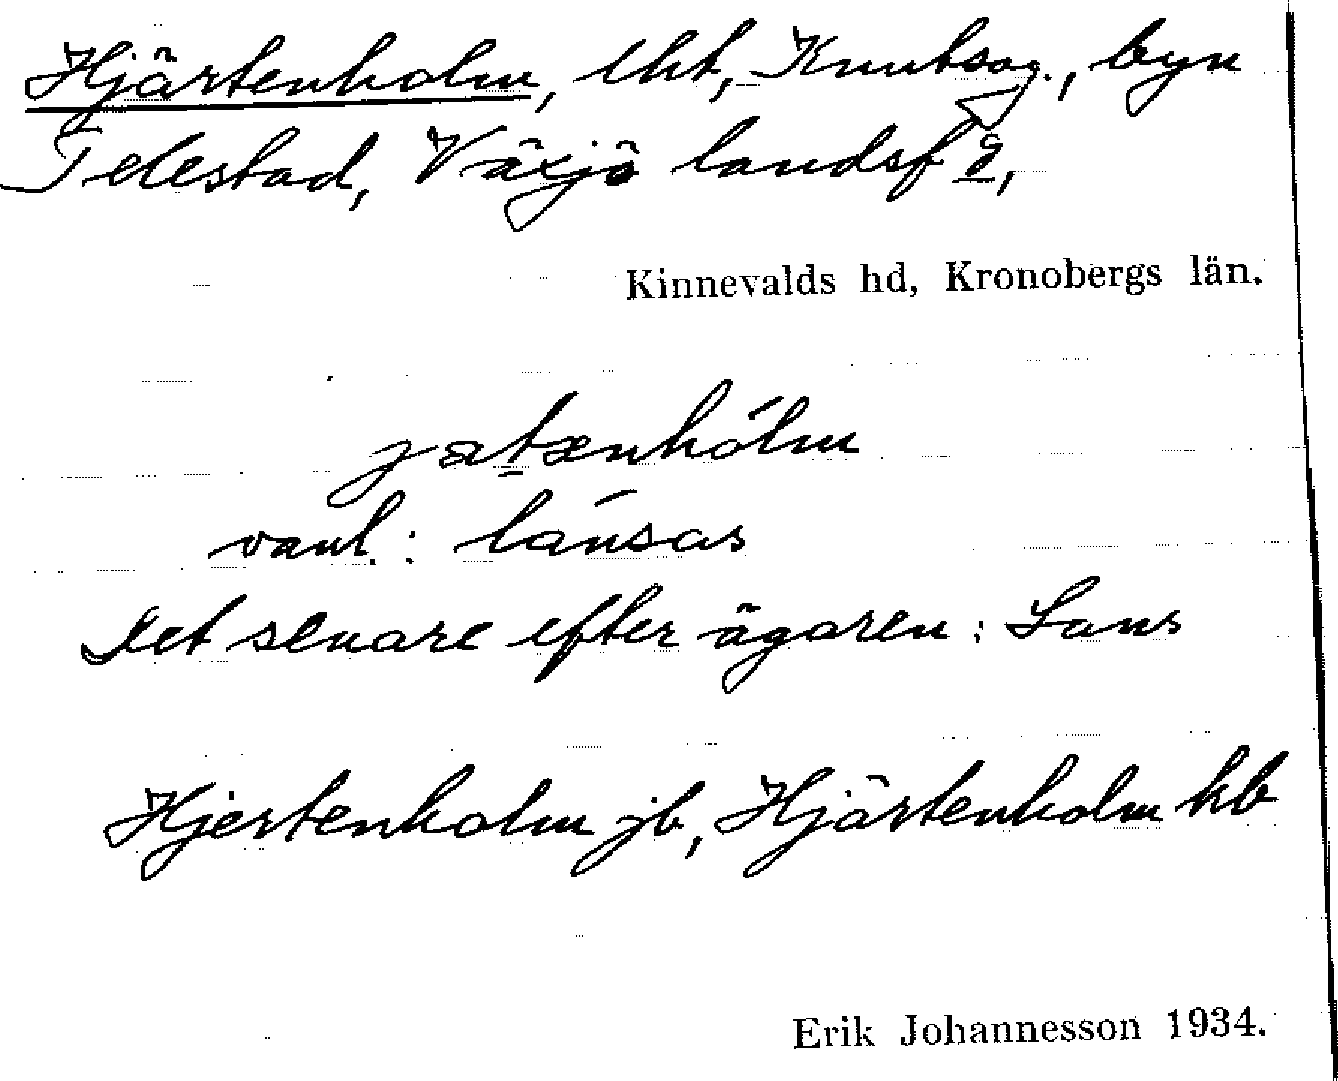 Hjärtenholm, lht, Knutsag., byn
Telestad, Växjö landsf g,
Kinnevalds hd, Kronobergs län.
jætænhólm
vanl.: lánsas
Det senare efter ägaren: Lans
Hjertenholm jb, Hjärtenholm kb
Erik Johannesson 1934.